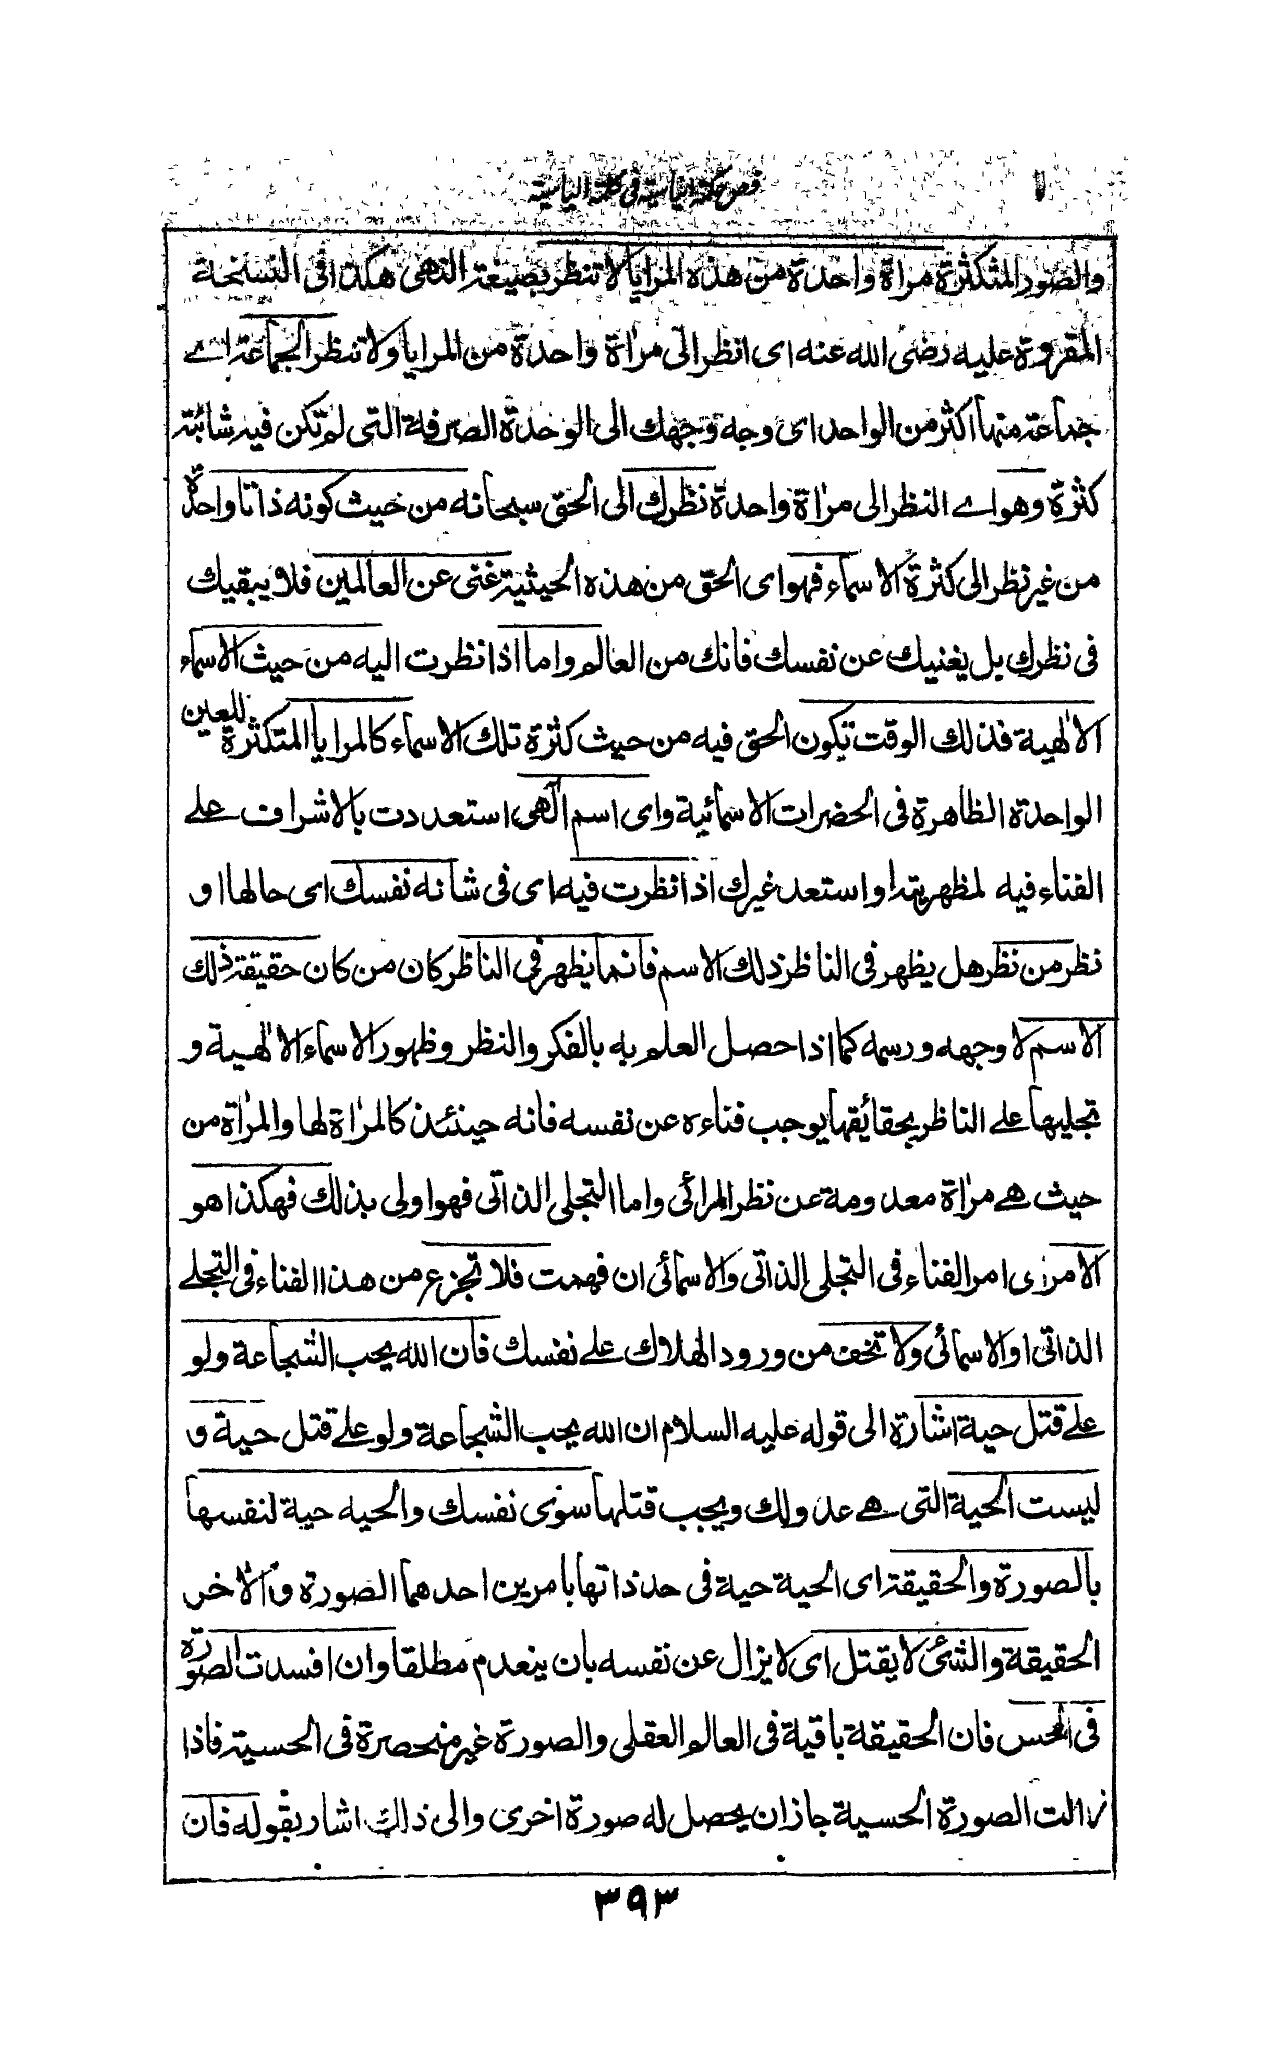 فص حكمة ايناسية فى كلمة الياسية
والصور المتكثرة مراة واحدة من هذه المرايا لا تنظر بصيغة النهى هكذا فى النسخة
المقروة عليه رضى الله عنه اى انظر الى مراة واحدة من المرايا ولا تنظر الجماعة اے
جماعة منها اكثر من الواحد اى وجه وجهك الى الوحدة الصرفة التى لم تكن فيه شائبة
كثرة وهو اے النظر الى مراة واحدة نظرك الى الحق سبحانه من حيث كونه ذاتا واحدة
من غير نظر الى كثرة الاسماء فهو اى الحق من هذه الحيثية غنى عن العالمين فلا يبقيك
فى نظرك بل يغنيك عن نفسك فانك من العالم واما اذا نظرت اليه من حيث الاسماء
الالٰهية فذلك الوقت تكون الحق فيه من حيث كثرة تلك الاسماء كالمرايا المتكثرة للعين
الواحدة الظاهرة فى الحضرات الاسمائية واى اسم الٰهى استعددت بالاشراف علے
الفناء فيه لمظهريته او استعد غيرك اذا نظرت فيه اى فى شانه نفسك اى حالها او
نظر من نظر هل يظهر فى الناظر ذلك الاسم فانما يظهر فى الناظر كان من كان حقيقة ذلك
الاسم لا وجهه ورسمه كما اذا حصل العلم به بالفكر والنظر وظهور الاسماء الالٰهية و
تجليها علے الناظر بحقائقها يوجب فناءه عن نفسه فانه حينئذ كالمراة لها والمراة من
حيث هے مراة معدومة عن نظر المرائى واما التجلى الذاتى فهو اولى بذلك فهكذا هو
الامر اى امر الفناء فى التجلى الذاتى والاسمائى ان فهمت فلا تجزع من هذا الفناء فى التجلے
الذاتى او الاسمائى ولا تخف من ورود الهلاك علے نفسك فان الله يحب الشجاعة ولو
علے قتل حية اشارة الى قوله عليه السلام ان الله يحب الشجاعة ولو علے قتل حية و
ليست الحية التى هے عدو لك ويجب قتلها سوى نفسك والحيه حية لنفسها
بالصورة والحقيقة اى الحية حية فى حد ذاتها بامرين احدهما الصورة والاخر
الحقيقة والشئ لا يقتل اى لا يزال عن نفسه بان ينعدم مطلقا وان افسدت الصورة
فى الحس فان الحقيقة باقية فى العالم العقلى والصورة غير منحصرة فى الحسية فاذا
زالت الصورة الحسية جاز ان يحصل له صورة اخرى والى ذلك اشار بقوله فان
٣٩٣